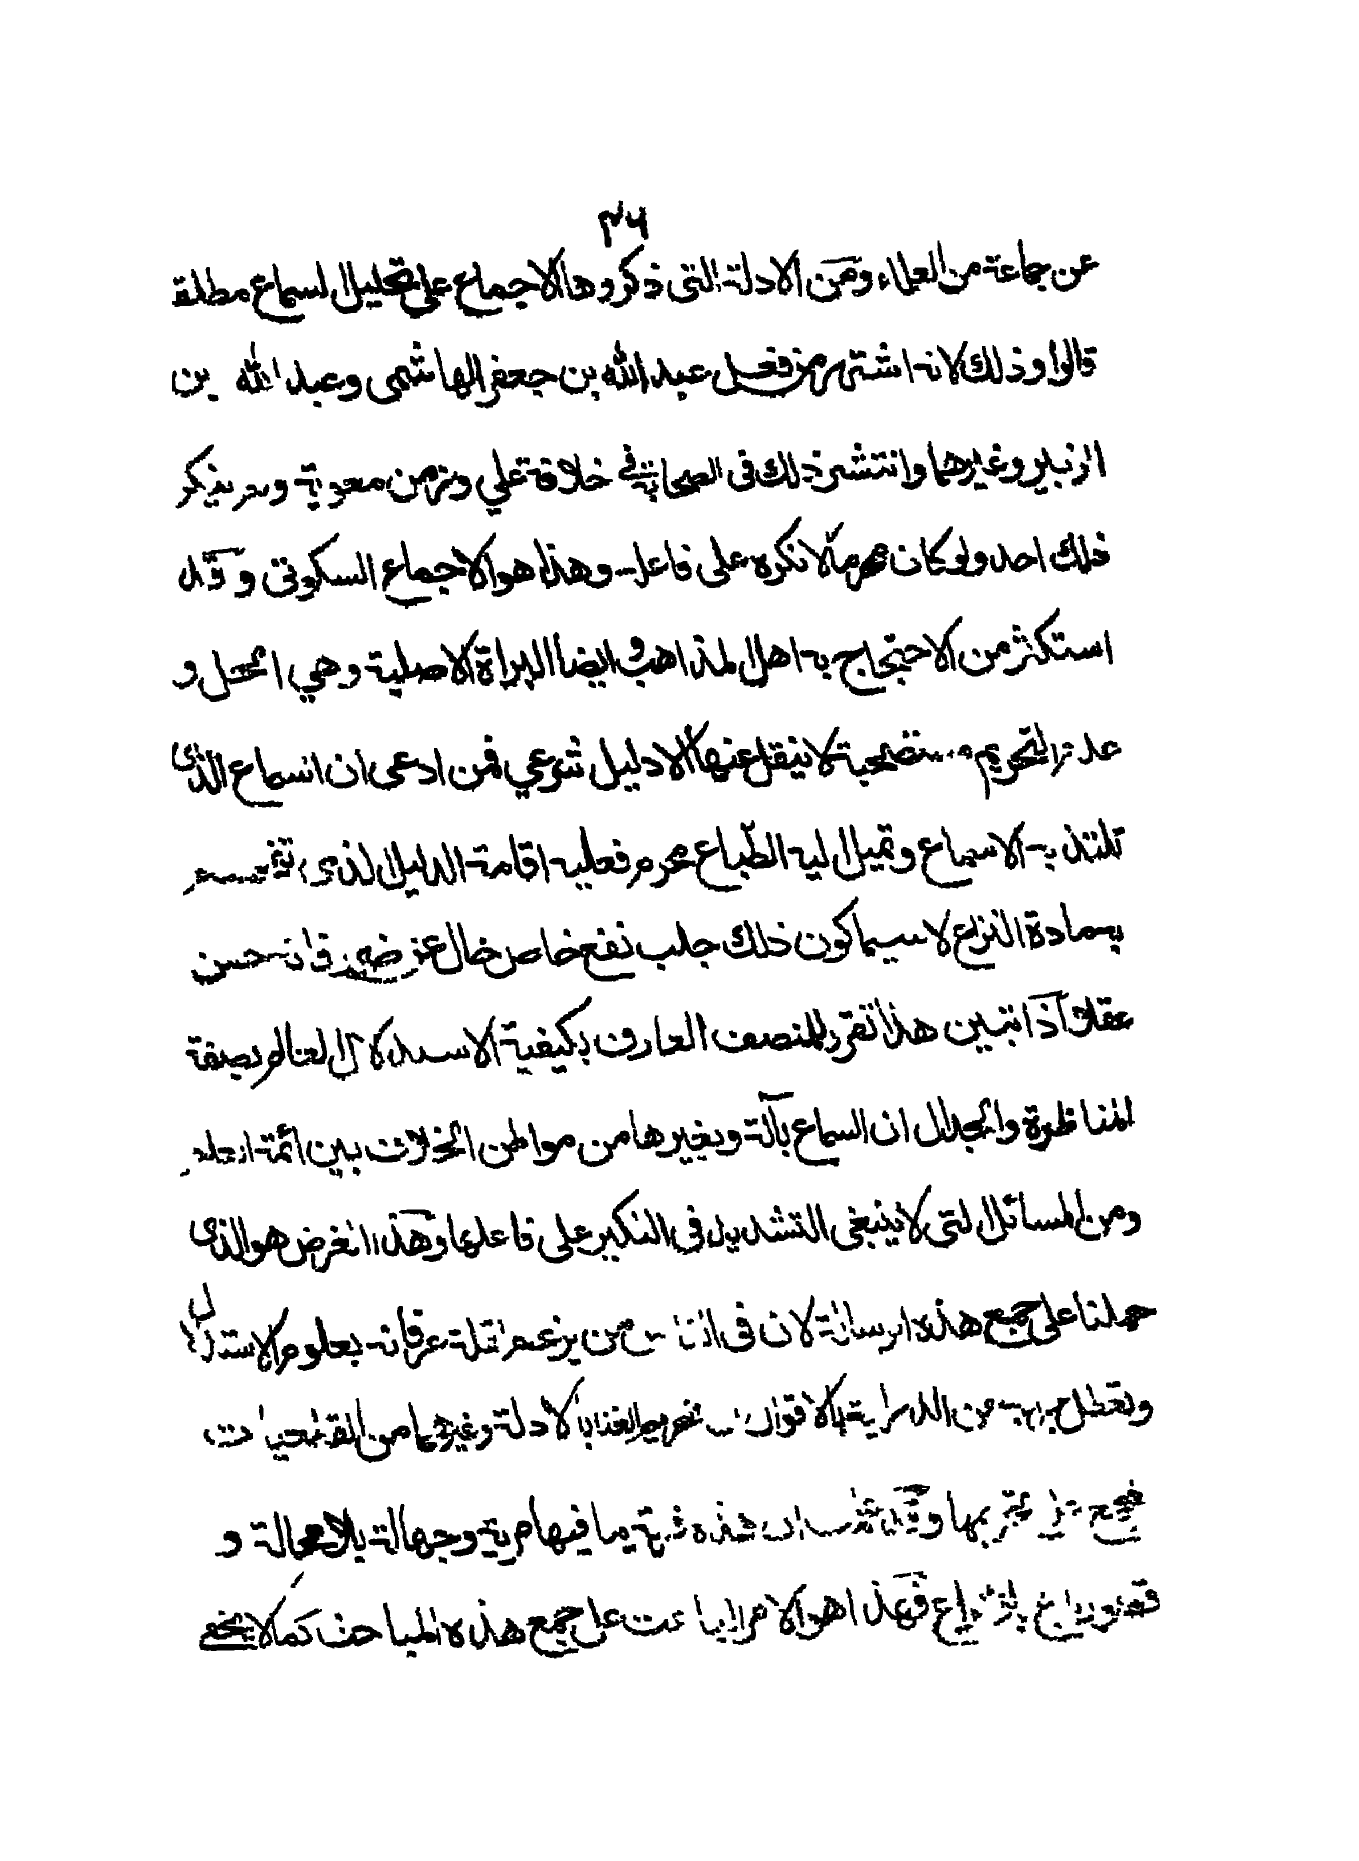 ٣٦
عن جماعة من العلماء ومن الادلة التى ذكروها الاجماع على تحليل السماع مطلقا
قالوا وذلك لانه اشتهر من فعل عبد الله بن جعفر الهاشمى وعبد الله بن
الزبير وغيرهما وانتشر ذلك فى الصحابة فى خلافة علي وزمن معوية ولم ينكر
ذلك احد ولو كان محرما لانكره على فاعله وهذا هو الاجماع السكوتى وقد
استكثر من الاحتجاج به اهل المذاهب وايضا البراة الاصلية وهي الحل و
عدم التحريم مستصحبة لا ينقل عنها الا دليل شرعي فمن ادعى ان السماع الذى
تلتذ به الاسماع وتميل اليه الطباع محرم فعليه اقامة الدليل الذى
به مادة النزاع لا سيما كون ذلك جلب نفع خاص خال عن ضرر فانه حسن
عقلا اذا تبين هذا تقرر للمنصف العارف بكيفية الاستدلال العالم بصفة
المناظرة والجدال ان السماع بآلة وبغيرها من مواطن الخلاف بين ائمة العلم
ومن المسائل التى لا ينبغى التشديد فى النكير على فاعلها وهذا الغرض هو الذى
حملنا على جمع هذه الرسالة لان فى الناس من يزعم لقلة عرفانه بعلوم الاستدلال
وتعطل من الدراية بالاقوال تحريم الغنا بالالة وغيرهما من القطعيات
وقد ان هذه فرية ما فيها مرية وجهالة بلا محالة و
فهذا هو الامر الباعث على جمع هذه المباحث كما لا يخفى